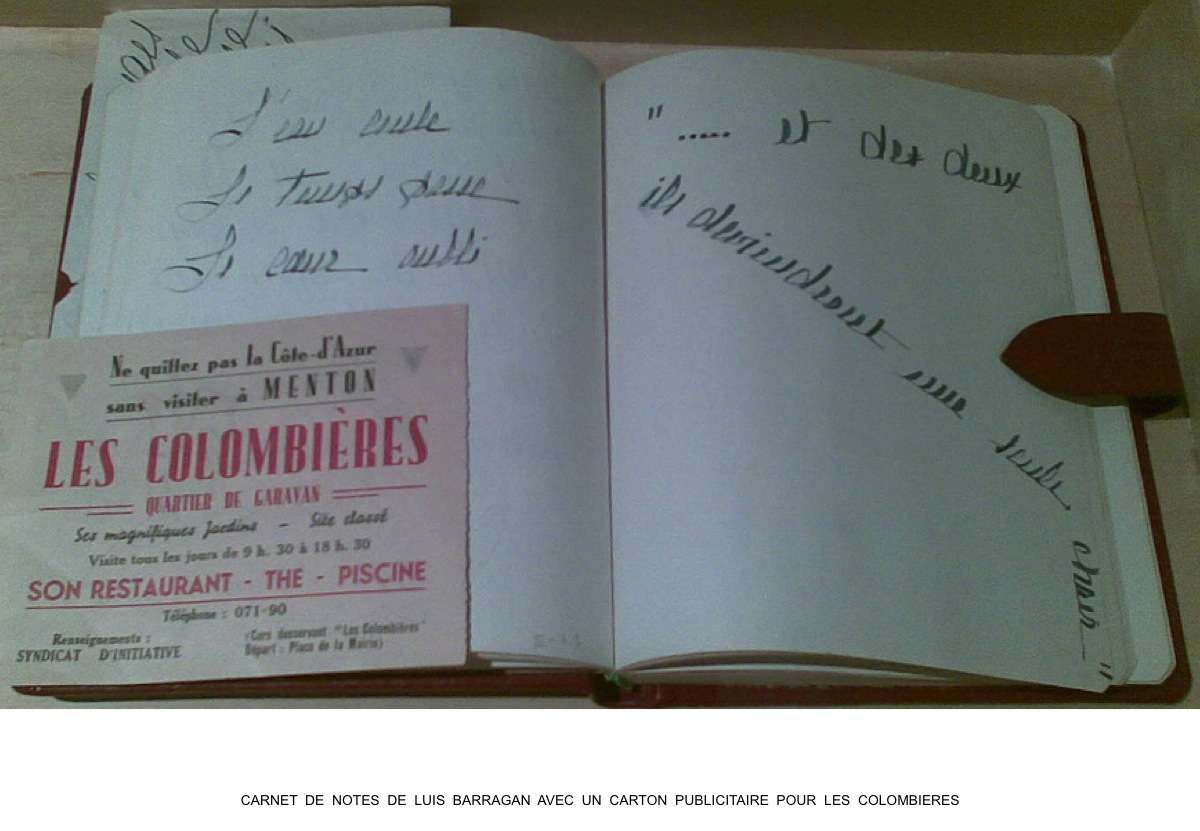 L'eau coule
Le temps passe
Le cœur oubli
"..... et des deux
ils deviendront une seule chair"
Ne quittez pas la Côte-d'Azur
sans visiter à MENTON
LES COLOMBIÈRES
QUARTIER DE GARAVAN
Ses magnifiques Jardins - Site classé
Visite tous les jours de 9 h. 30 à 18 h. 30
SON RESTAURANT - THE - PISCINE
Téléphone : 071-90
Renseignements :
SYNDICAT D'INITIATIVE
(Cars desservant "Les Colombières"
Départ : Place de la Mairie)
CARNET DE NOTES DE LUIS BARRAGAN AVEC UN CARTON PUBLICITAIRE POUR LES COLOMBIERES